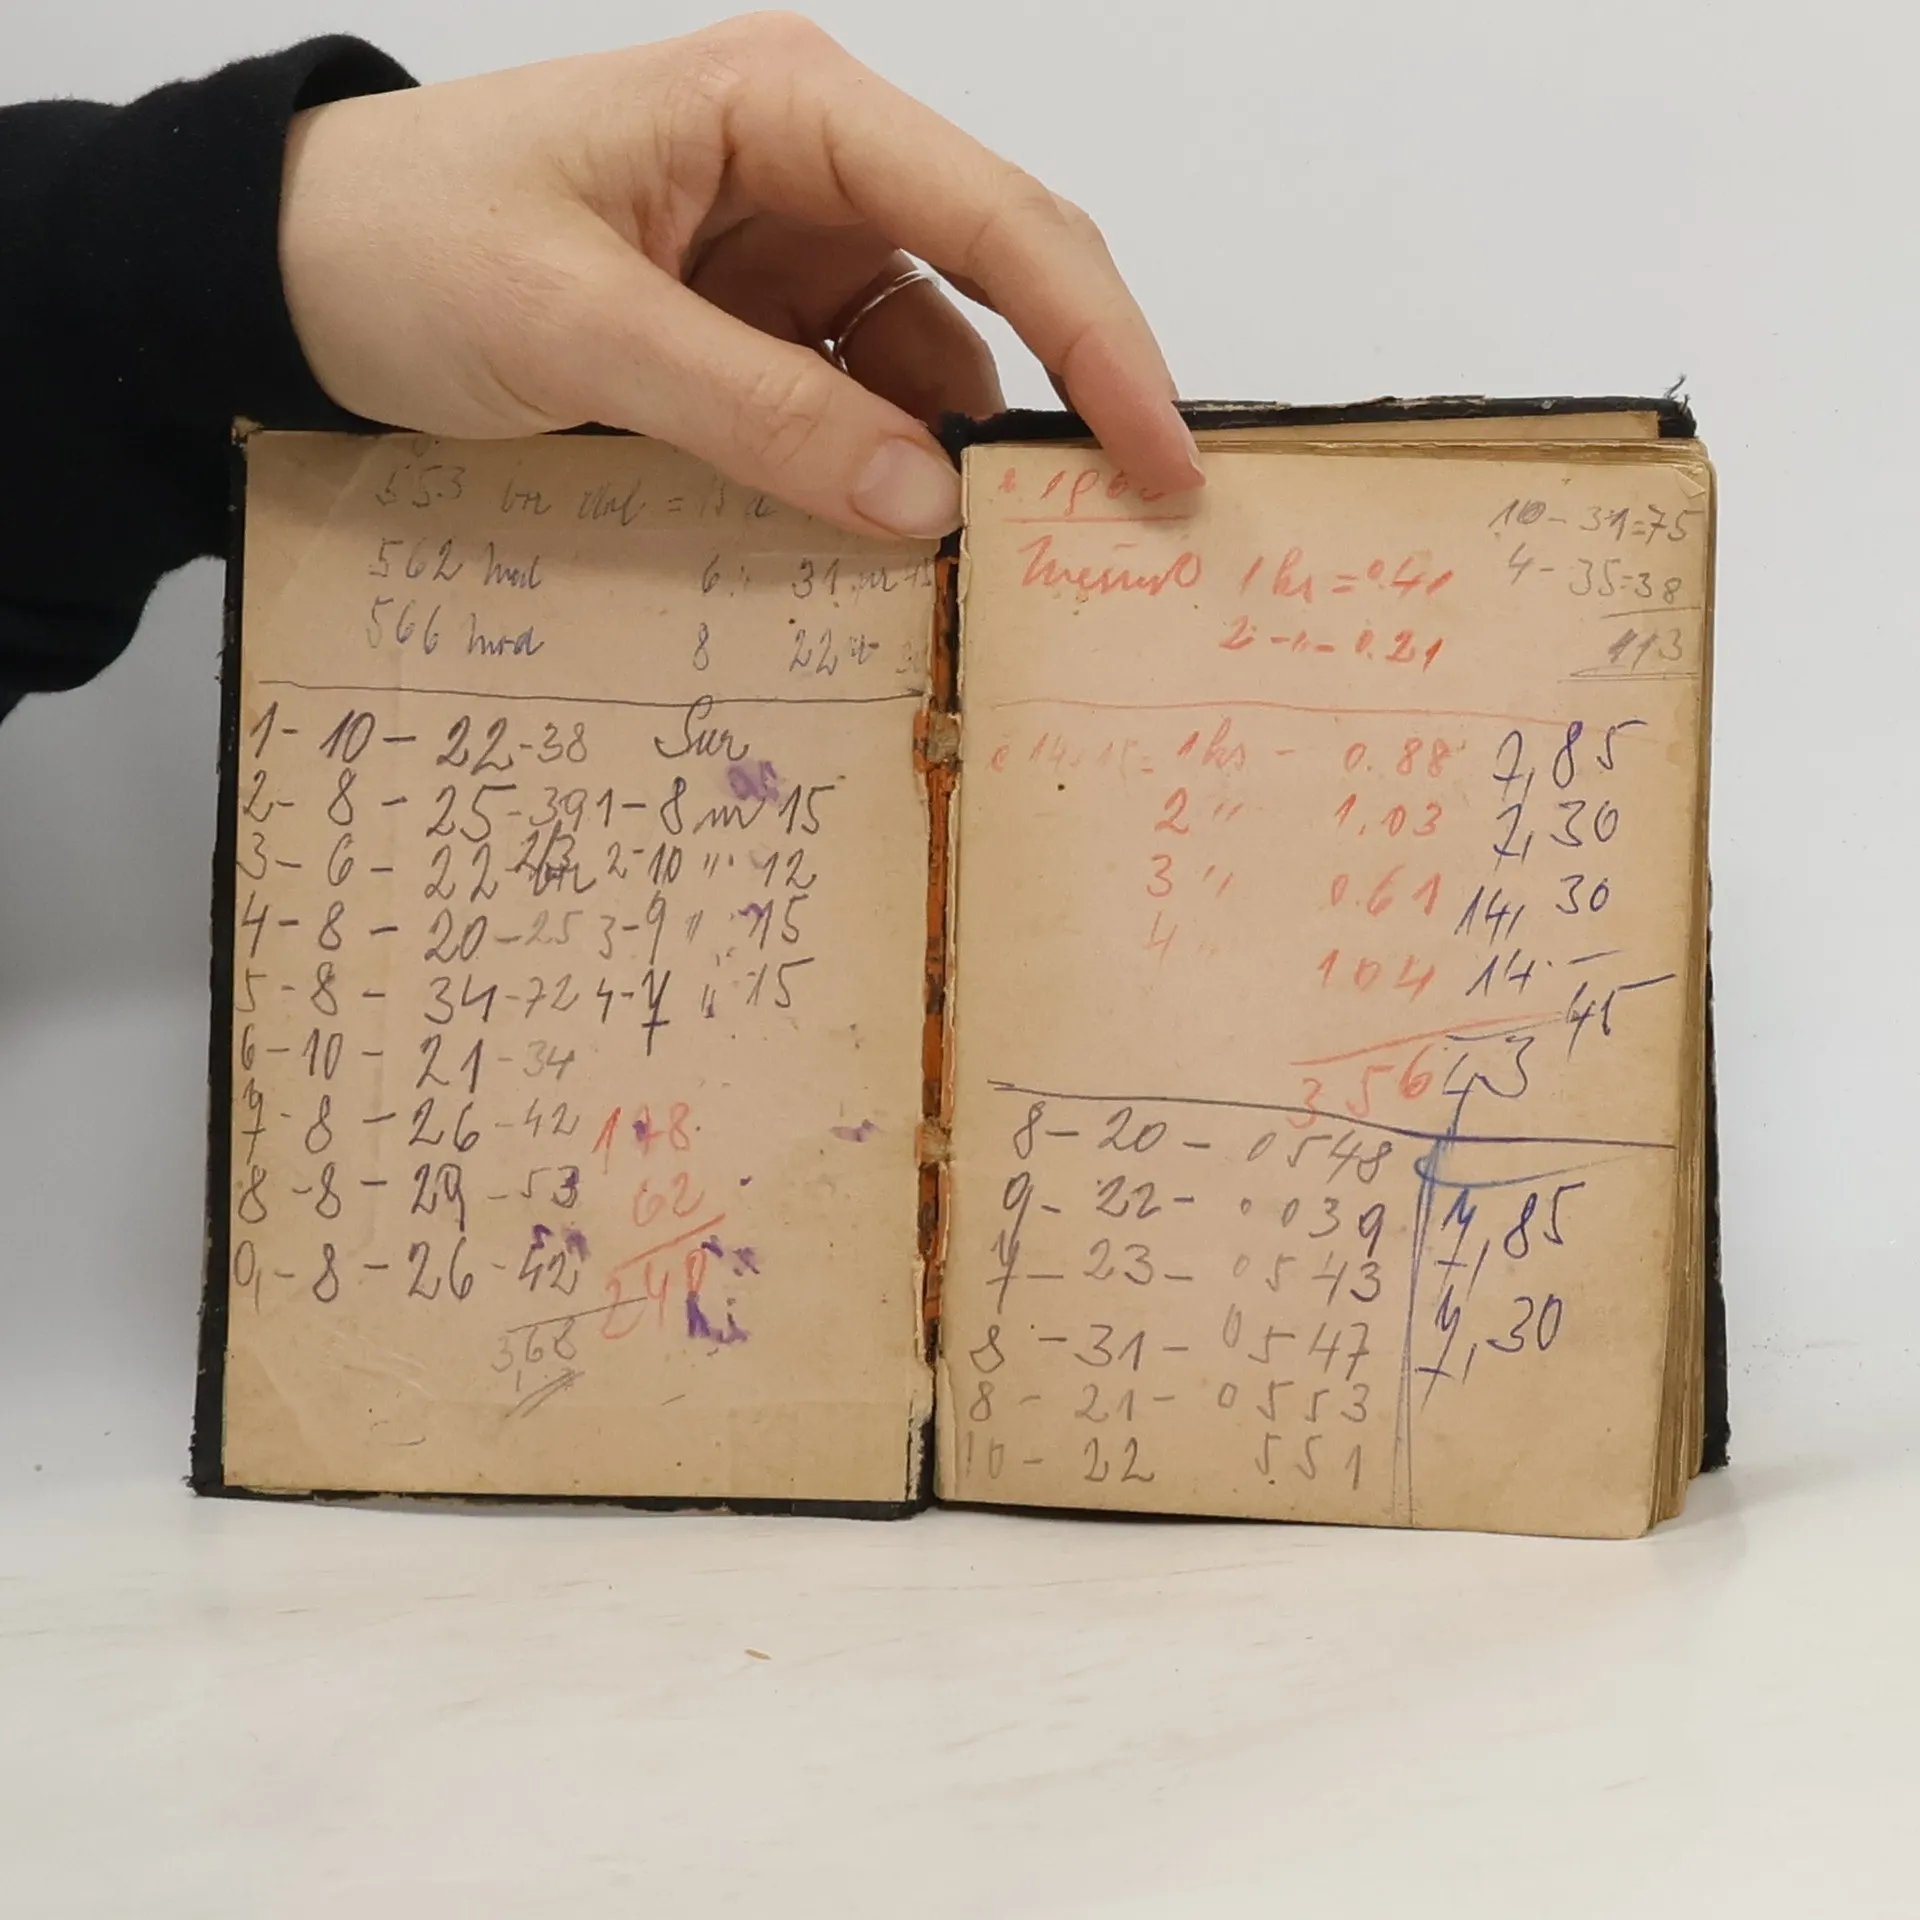 553
562 mod 6 31
566 mod 8 22
1- 10 - 22-38 Sur
2- 8 - 25-39 1-8 m 15
3- 6 - 22 - 2/3 2-10 " 12
4- 8 - 20-25 3-9 " 15
5- 8 - 34-72 4-7 " 15
6-10 - 21-34
7- 8 - 26-42 178
8-8 - 29-53 62
0,- 8 - 26-42 240
3,68
10-31=75
1 ks = 0.41 4-35=38
2 -"- 0.21 113
14.15= 1 ks - 0.88 7,85
2 " 1.03 7,30
3 " 0.61 14, 30
4 " 1 04 14.-
3 56 43 45
8- 20 - 0548
9- 22- 0 039 7,85
7- 23- 0543
8 -31- 0547 7,30
8 - 21- 0553
10- 22 551